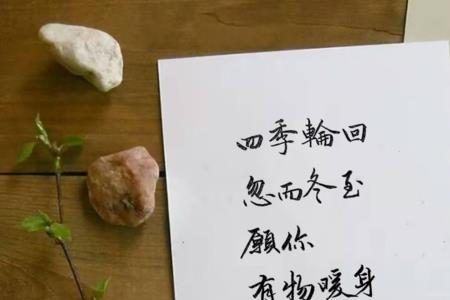 四季輪回
忽而冬至
願你
有物暖身